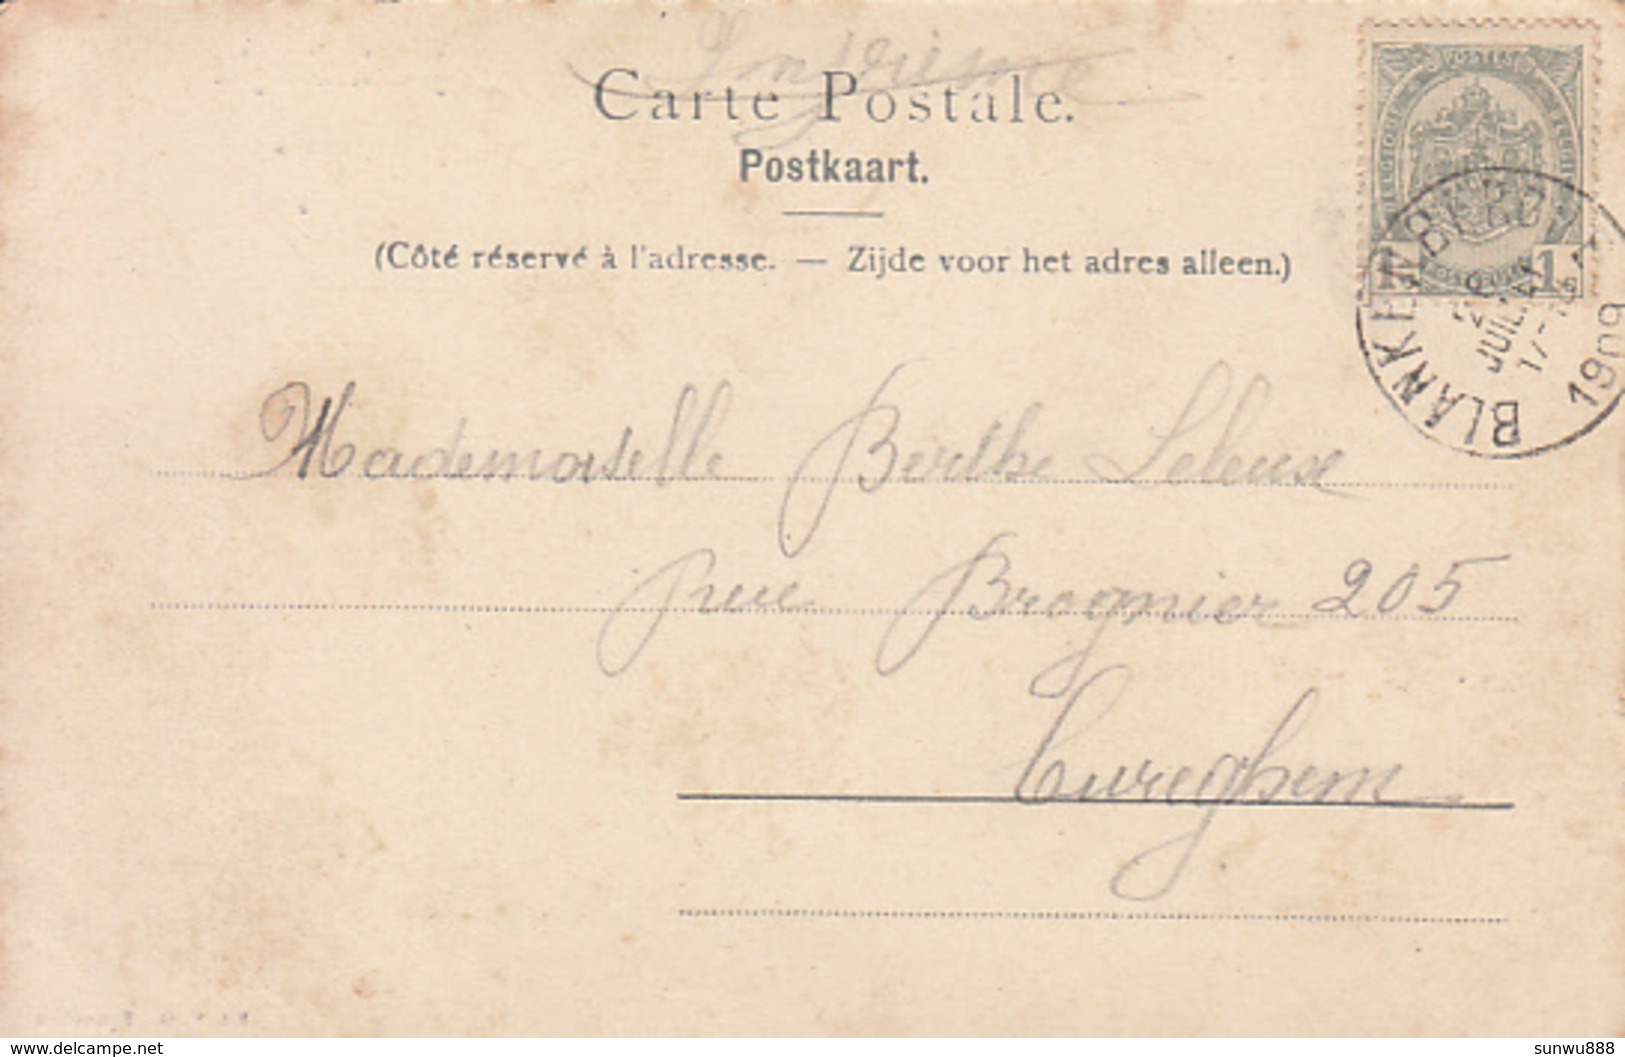 Imprimé
Carte Postale.
Postkaart.
(Côté réservé à l'adresse. — Zijde voor het adres alleen.)
POSTES
1 1
BLANKENBERGHE
JUIL
17-
1909
Mademoiselle Berthe
rue Brognier 205
Cureghem
www.delcampe.net
sunwu888